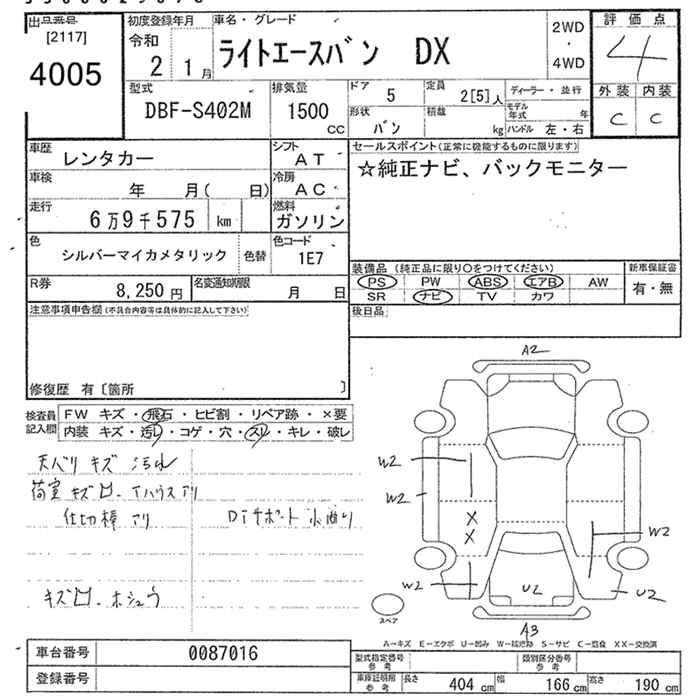 出品番号
[2117]
4005
初度登録年月
令和
2 1月
車名・グレード
ライトエースバン DX
2WD
・
4WD
評価点
4
外装 内装
C C
型式
DBF-S402M
排気量
1500
CC
ドア
5
定員
2[5]人
ディーラー・並行
形状
バン
積載
kg
モデル年式 年
ハンドル 左・右
車歴
レンタカー
シフト
AT
セールスポイント(正常に機能するものに限ります)
☆純正ナビ、バックモニター
車検
年 月( 日)
冷房
AC
走行
6万9千575 km
燃料
ガソリン
色
シルバーマイカメタリック
色替
色コード
1E7
装備品(純正品に限り○をつけてください)
新車保証書
PS PW ABS エアB AW
SR ナビ TV カワ
有・無
R券
8,250円
名変通知期限
月 日
後日品
注意事項申告欄(不具合内容等は具体的に記入して下さい)
修復歴 有〔箇所 〕
検査員
記入欄
FW キズ・飛石・ヒビ割・リペア跡・×要
内装 キズ・汚レ・コゲ・穴・スレ・キレ・破レ
天バリ キズ 汚れ
荷室 キズ凹. Tハウスアリ
仕切棒 アリ
キズ凹. ホシュウ
A2
W2
W2
X
X
W2
W2
U2
U2
A3
スペア
A-キズ E-エクボ U-凹み W-板跡 S-サビ C-腐食 XX-交換済
車台番号
0087016
登録番号
型式指定番号
参考
類別区分番号
参考
車庫証明用
参考
長さ
404 cm
幅
166 cm
高さ
190 cm